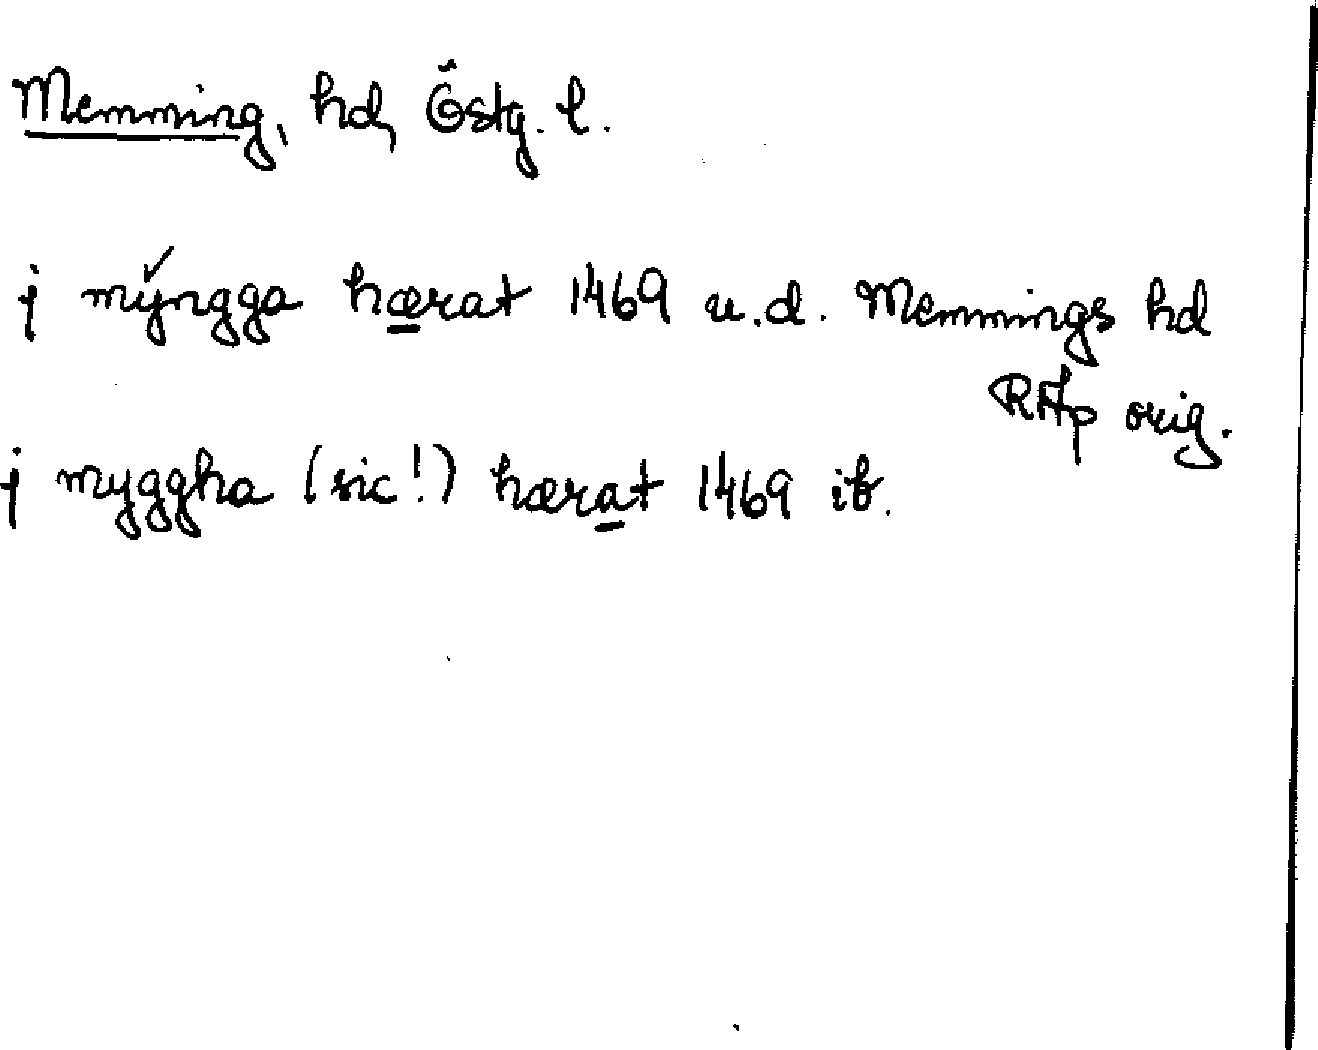 Memming, hd, Östg. l.
j mýngga hærat 1469 u.d. Memmings hd
RAp orig.
j myggha (sic!) hærat 1469 ib.